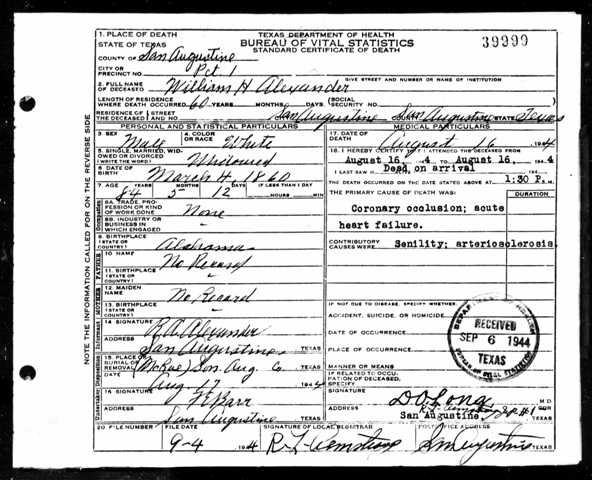 1. PLACE OF DEATH
STATE OF TEXAS
TEXAS DEPARTMENT OF HEALTH
BUREAU OF VITAL STATISTICS
STANDARD CERTIFICATE OF DEATH
39999
COUNTY OF San Augustine
CITY OR
PRECINCT NO. Pct 1
GIVE STREET AND NUMBER OR NAME OF INSTITUTION
2. FULL NAME
OF DECEASED William H Alexander
LENGTH OF RESIDENCE
WHERE DEATH OCCURRED 60 YEARS MONTHS DAYS (SOCIAL SECURITY NO.
RESIDENCE OF THE DECEASED STREET AND NO. San Augustine San Augustine STATE Texas
PERSONAL AND STATISTICAL PARTICULARS
3. SEX Male
4. COLOR OR RACE White
5. SINGLE, MARRIED, WIDOWED OR DIVORCED (WRITE THE WORD) Widowed
6. DATE OF BIRTH March 4, 1860
7. AGE YEARS MONTHS DAYS IF LESS THAN 1 DAY
84 5 12 HOURS MIN
8A. TRADE, PROFESSION OR KIND OF WORK DONE None
8B. INDUSTRY OR BUSINESS IN WHICH ENGAGED "
9. BIRTHPLACE (STATE OR COUNTRY) Alabama
FATHER
10. NAME No Record
11. BIRTHPLACE (STATE OR COUNTRY) "
MOTHER
12. MAIDEN NAME No Record
13. BIRTHPLACE (STATE OR COUNTRY) "
14. SIGNATURE R A Alexander
ADDRESS San Augustine TEXAS
15. PLACE OF BURIAL OR REMOVAL (McRae) San Aug. Co. TEXAS
DATE Aug 17 1944
16. SIGNATURE Barr
ADDRESS San Augustine TEXAS
MEDICAL PARTICULARS
17. DATE OF DEATH August 16 1944
18. I HEREBY CERTIFY THAT I ATTENDED THE DECEASED FROM
August 16, 4 TO August 16, 1944
I LAST SAW H Dead on arrival
THE DEATH OCCURRED ON THE DATE STATED ABOVE AT 1:30 P. M.
THE PRIMARY CAUSE OF DEATH WAS: DURATION
Coronary occlusion; acute
heart failure.
CONTRIBUTORY CAUSES WERE: Senility; arteriosclerosis
IF NOT DUE TO DISEASE, SPECIFY WHETHER
ACCIDENT, SUICIDE, OR HOMICIDE
DATE OF OCCURRENCE
PLACE OF OCCURRENCE
MANNER OR MEANS
IF RELATED TO OCCUPATION OF DECEASED, SPECIFY
SIGNATURE D O Long M.D.
ADDRESS San Augustine TEXAS
DEPARTMENT OF HEALTH
RECEIVED
SEP 6 1944
TEXAS
BUREAU OF VITAL STATISTICS
20. FILE NUMBER
FILE DATE 9-4 1944
SIGNATURE OF LOCAL REGISTRAR R L Armstrong
POST OFFICE ADDRESS San Augustine TEXAS
NOTE THE INFORMATION CALLED FOR ON THE REVERSE SIDE